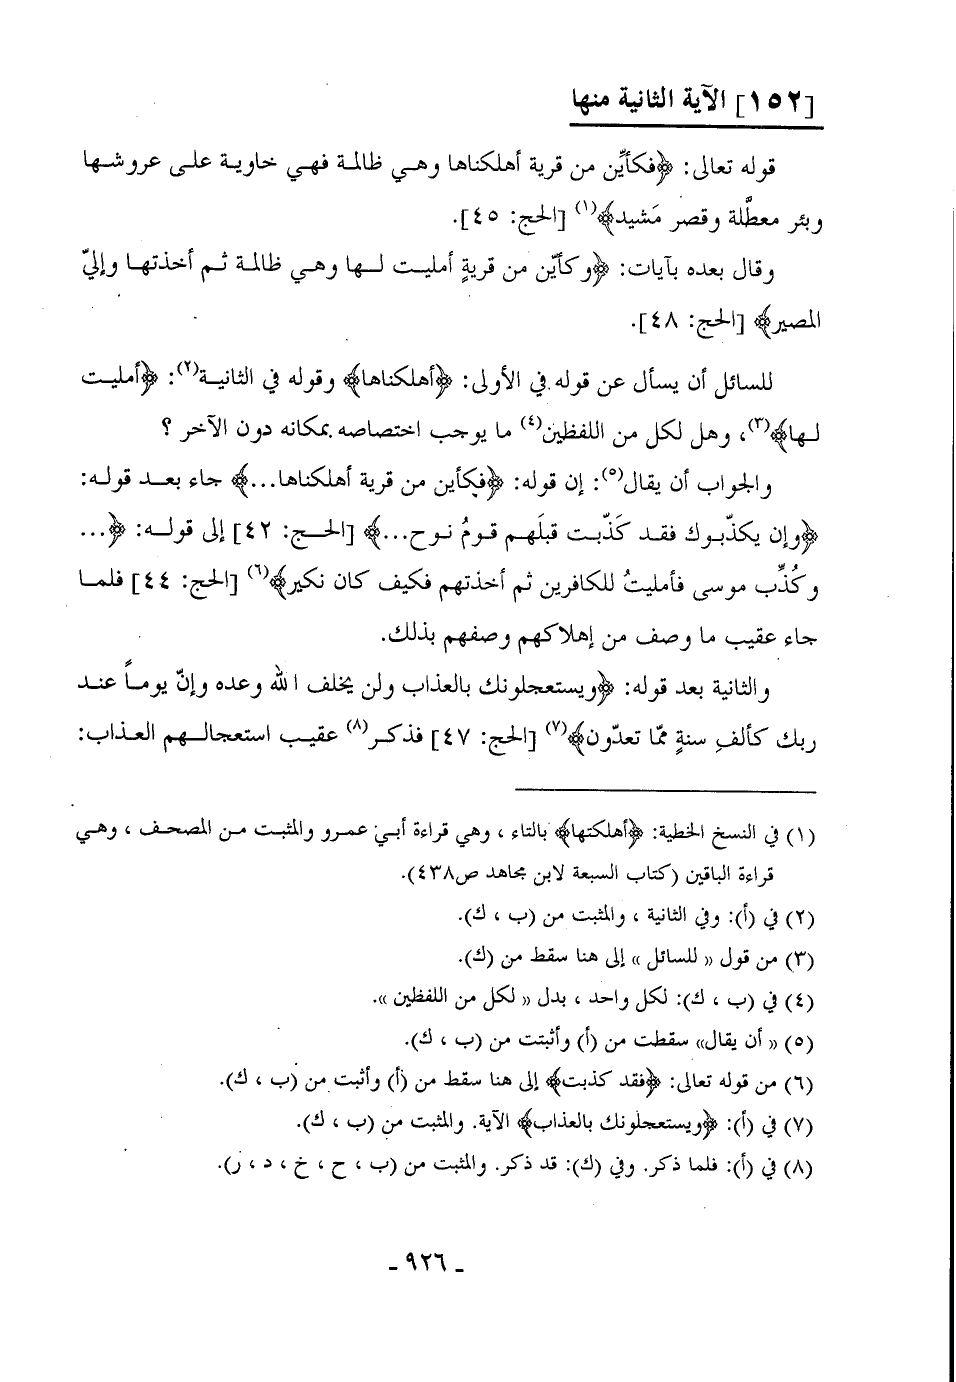 [١٥٢] الآية الثانية منها
قوله تعالى: ﴿فكأيّن من قرية أهلكناها وهي ظالمة فهي خاوية على عروشها
وبئر معطَّلة وقصر مَشيد﴾(١) [الحج: ٤٥].
وقال بعده بآيات: ﴿وكأيّن من قريةٍ أمليت لها وهي ظالمة ثم أخذتها وإليّ
المصير﴾ [الحج: ٤٨].
للسائل أن يسأل عن قوله في الأولى: ﴿أهلكناها﴾ وقوله في الثانية(٢): ﴿أمليت
لها﴾(٣)، وهل لكل من اللفظين(٤) ما يوجب اختصاصه بمكانه دون الآخر ؟
والجواب أن يقال(٥): إن قوله: ﴿فكأين من قرية أهلكناها...﴾ جاء بعد قوله:
﴿وإن يكذّبوك فقد كَذّبت قبلَهم قومُ نوح...﴾ [الحج: ٤٢] إلى قوله: ﴿...
وكُذِّب موسى فأمليتُ للكافرين ثم أخذتهم فكيف كان نكير﴾(٦) [الحج: ٤٤] فلما
جاء عقيب ما وصف من إهلاكهم وصفهم بذلك.
والثانية بعد قوله: ﴿ويستعجلونك بالعذاب ولن يخلف الله وعده وإنّ يوماً عند
ربك كألفِ سنةٍ ممّا تعدّون﴾(٧) [الحج: ٤٧] فذكر(٨) عقيب استعجالهم العذاب:
(١) في النسخ الخطية: ﴿أهلكتها﴾ بالتاء ، وهي قراءة أبي عمرو والمثبت من المصحف ، وهي
قراءة الباقين (كتاب السبعة لابن مجاهد ص٤٣٨).
(٢) في (أ): وفي الثانية ، والمثبت من (ب ، ك).
(٣) من قول « للسائل » إلى هنا سقط من (ك).
(٤) في (ب ، ك): لكل واحد ، بدل « لكل من اللفظين ».
(٥) « أن يقال» سقطت من (أ) وأثبتت من (ب ، ك).
(٦) من قوله تعالى: ﴿فقد كذبت﴾ إلى هنا سقط من (أ) وأثبت من (ب ، ك).
(٧) في (أ): ﴿ويستعجلونك بالعذاب﴾ الآية. والمثبت من (ب ، ك).
(٨) في (أ): فلما ذكر. وفي (ك): قد ذكر. والمثبت من (ب ، ح ، خ ، د ، ر).
- ٩٢٦ -